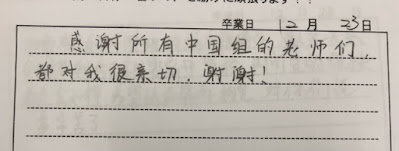 卒業日 12月 23日
感谢所有中国组的老师们，
都对我很亲切，谢谢！